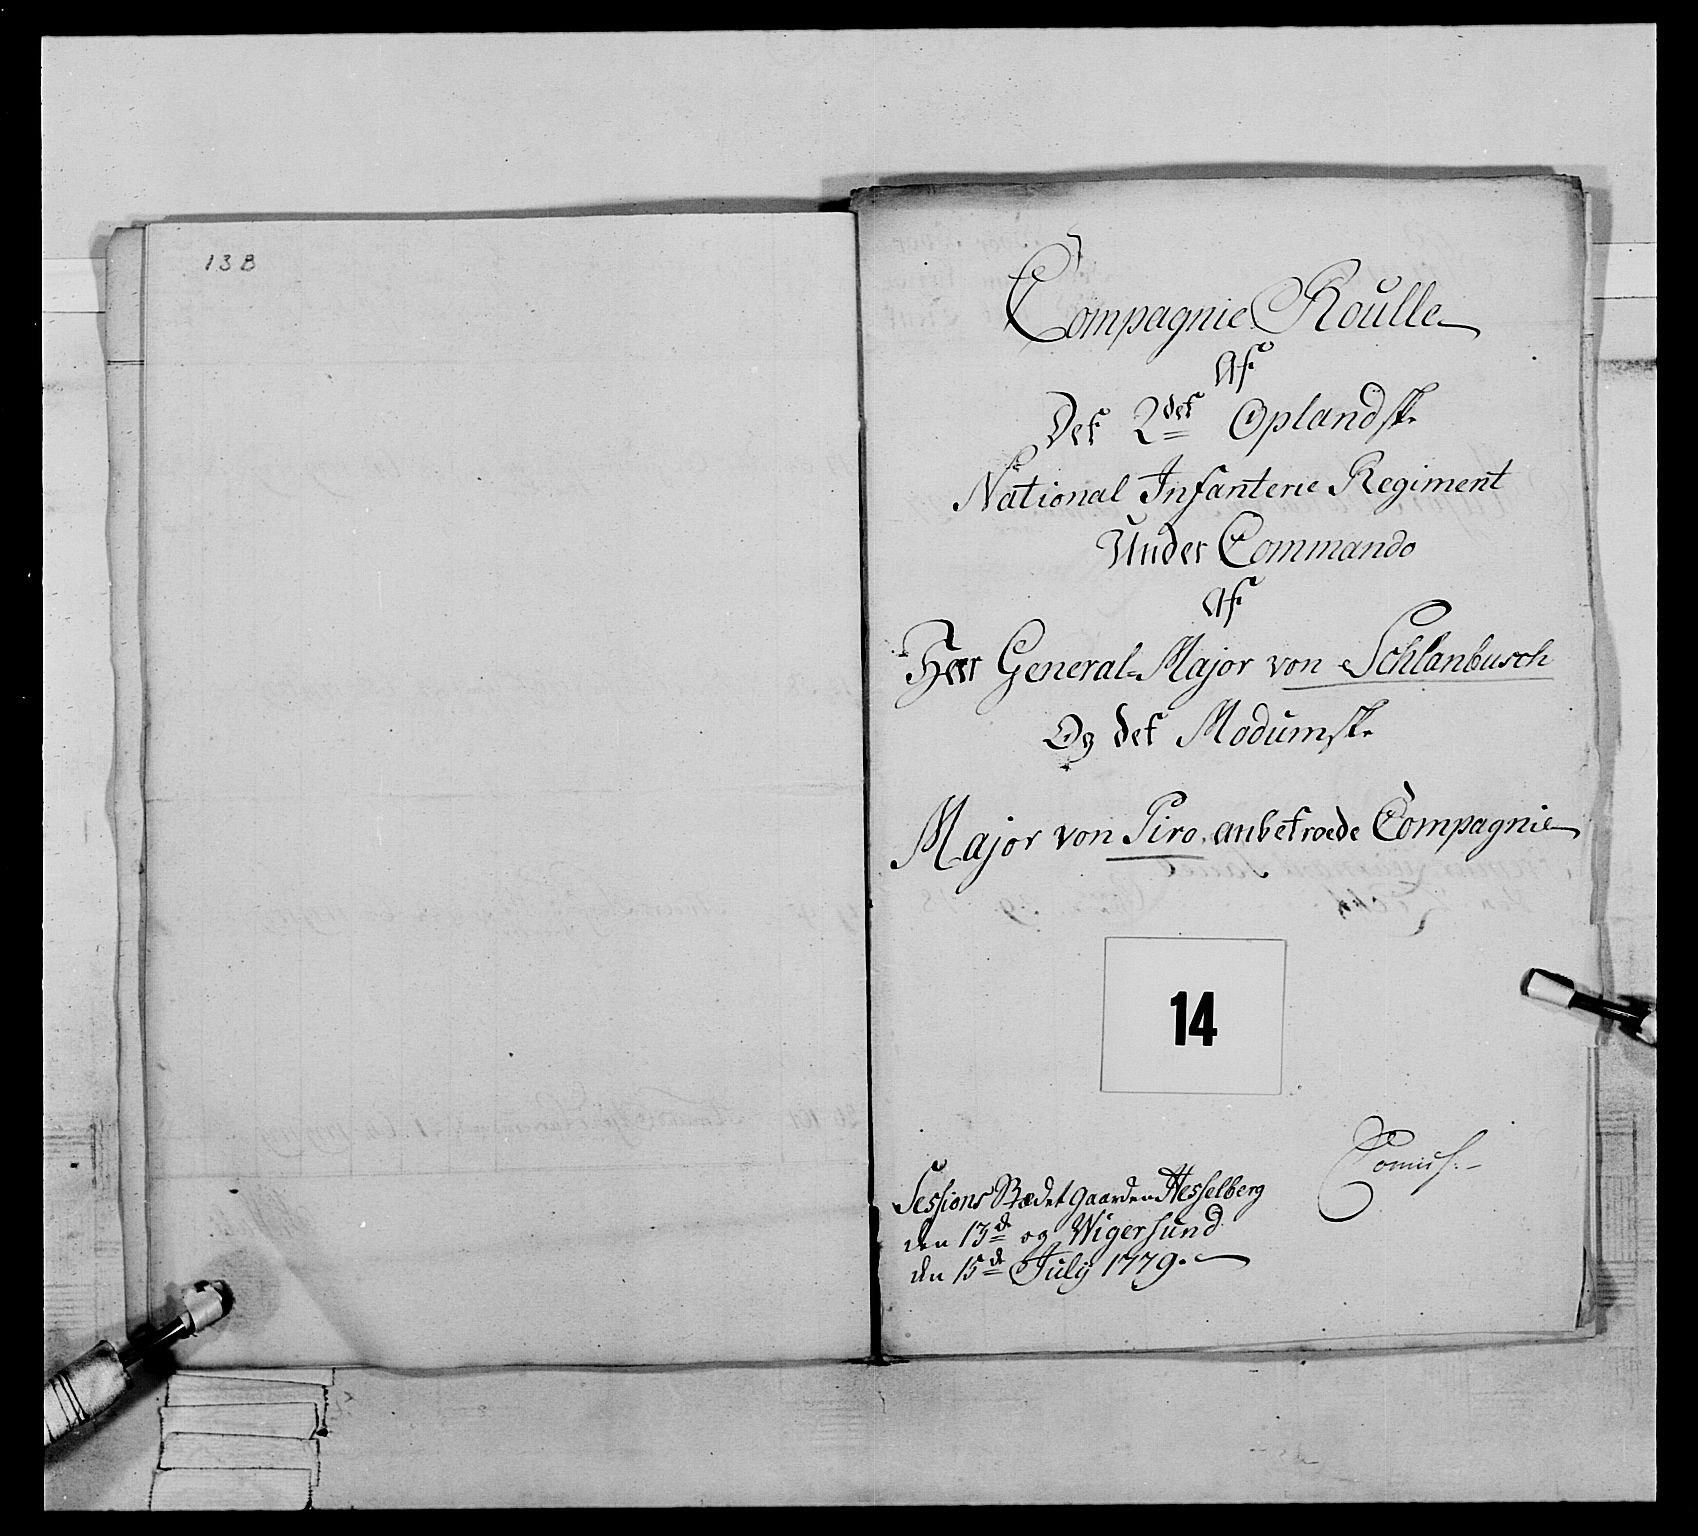 13B
Compagnie Roulle
Af
Det 2det Oplandske
National Infanterie Regiment
Under Commando
Af
Herr General-Major von Schlanbusch
Og det Modumske
Major von Piro anbetroede Compagnie
14
Comiss:
Sessions Stædet gaarden Hesselberg
den 13de og Wigersund
den 15de July 1779.